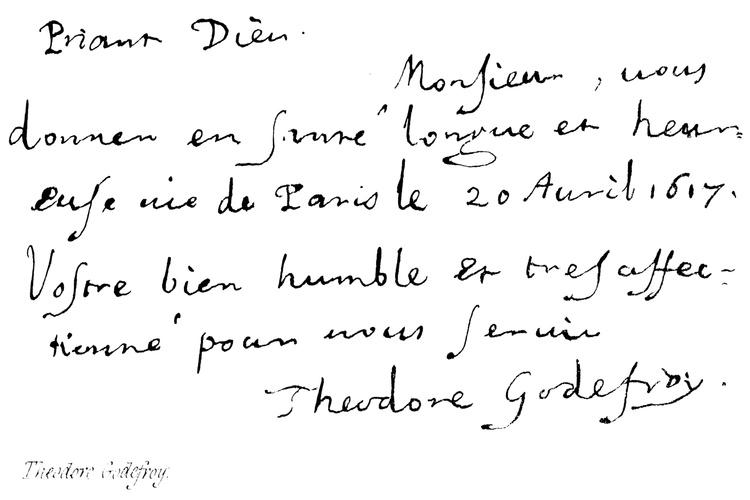 Priant Dieu.
Monsieur, vous
donner en santé longue et heur=
euse vie de Paris le 20 Auril 1617.
Vostre bien humble et tres affec=
tionné pour vous seruir
Theodore Godefroy.
Theodore Godefroy.